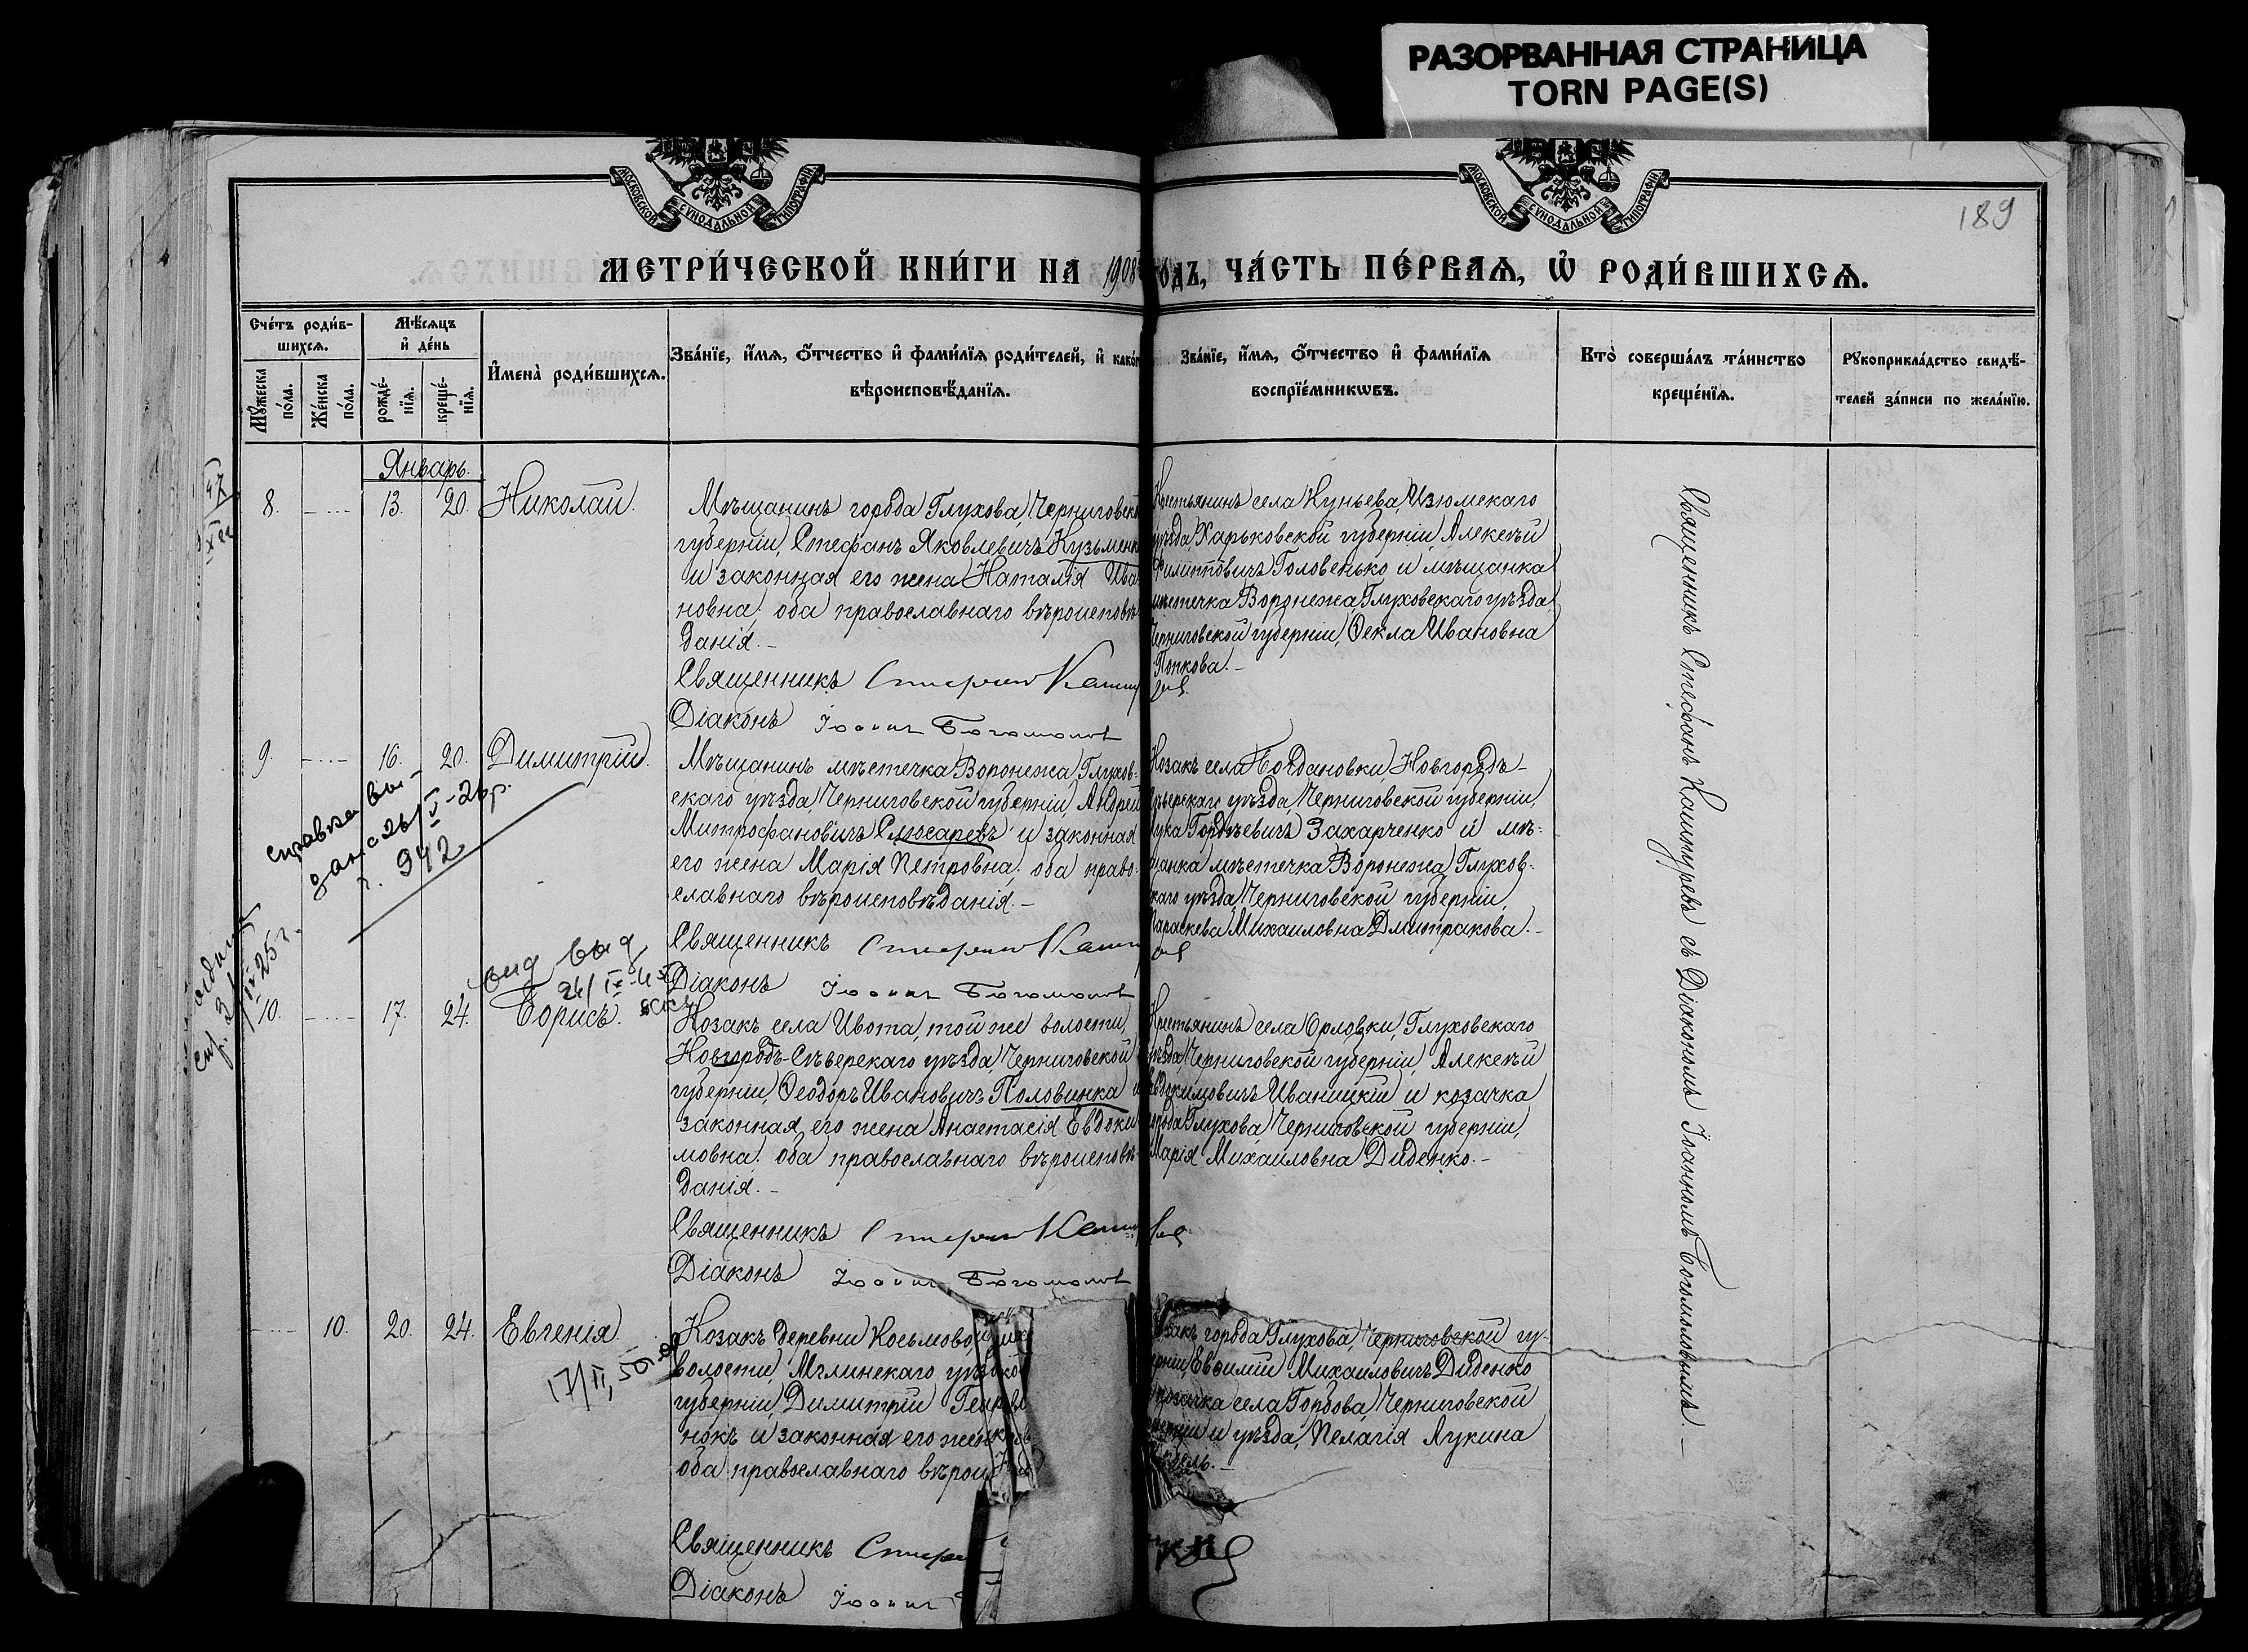 РАЗОРВАННАЯ СТРАНИЦА
TORN PAGE(S)
МОСКОВСКОЙ СѴНОДАЛЬНОЙ ТИПОГРАФІИ
МОСКОВСКОЙ СѴНОДАЛЬНОЙ ТИПОГРАФІИ
189
МЕТРИ́ЧЕСКОЙ КНИ́ГИ НА 1908
ОДЪ, ЧА́СТЬ ПЕ́РВАѦ, Ѡ҆ РОДИ́ВШИХСѦ.
Сче́тъ роди́в-
шихсѧ.
Мꙋ́жеска по́ла.
Же́нска по́ла.
Мѣ́сѧцъ
и҆ де́нь
рожде́-
нїѧ.
креще́-
нїѧ.
И҆мена̀ роди́вшихсѧ.
Зва́нїе, и҆́мѧ, ѻ҆́тчество и҆ фами́лїѧ роди́телей, и҆ како́г
вѣроисповѣ́данїѧ.
Зва́нїе, и҆́мѧ, ѻ҆́тчество и҆ фами́лїѧ
воспрїе́мникѡвъ.
Кто̀ соверша́лъ та́инство
креще́нїѧ.
Рꙋкоприкла́дство свидѣ́-
телей за́писи по жела́нїю.
Январь.
8. 13. 20. Николай.
Мѣщанинъ города Глухова, Черниговско
губерніи, Стефанъ Яковлевичъ Кузьменк
и законная его жена Наталія Ива
новна; оба православнаго вѣроисповѣ
данія. –
Священникъ Стефанъ
Діаконъ Іоаннъ Богомоловъ
Крестьянинъ села Куньева, Изюмскаго
уѣзда, Харьковской губерніи, Алексѣй
Филипповичъ Головенько и мѣщанка
мѣстечка Воронежа, Глуховскаго уѣзда,
Черниговской губерніи, Ѳекла Ивановна
Попкова. –
9. 16. 20. Димитрій.
Мѣщанинъ мѣстечка Воронежа, Глухов-
скаго уѣзда, Черниговской губерніи, Андрей
Митрофановичъ Слюсаревъ и законная
его жена Марія Петровна; оба право-
славнаго вѣроисповѣданія. –
Священникъ Стефанъ
Діаконъ Іоаннъ Богомоловъ
Козакъ села Богдановки, Новгородъ-
сѣверскаго уѣзда, Черниговской губерніи,
Лука Гордѣевичъ Захарченко и мѣ-
щанка мѣстечка Воронежа, Глухов-
скаго уѣзда, Черниговской губерніи,
Параскева Михаиловна Дмитракова. –
справка вы-
942
10. 17. 24. Борисъ.
Козакъ села Ивота, той же волости,
Новгородъ-Сѣверскаго уѣзда, Черниговской
губерніи, Ѳеодоръ Ивановичъ Половинка и
законная его жена Анастасія Евдоки
мовна; оба православнаго вѣроисповѣ-
данія. –
Священникъ Стефанъ
Діаконъ Іоаннъ Богомоловъ
Крестьянинъ села Орловки, Глуховскаго
уѣзда, Черниговской губерніи, Алексѣй
Евдокимовичъ Иваницкій и козачка
города Глухова, Черниговской губерніи,
Марія Михаиловна Диденко. –
10. 20. 24. Евгенія.
17/II, 50
Козакъ деревни
волости, Мглинскаго
губерніи, Димитрій
нокъ и законная его жен
оба православнаго вѣроис
Священникъ
Діаконъ Іоаннъ
козакъ города Глухова, Черниговской гу-
берніи, Евѳимій Михаиловичъ Диденко
козачка села Горбова, Черниговской
губерніи и уѣзда, Пелагія Лукина
Священникъ Стефанъ Кашпуревъ съ Діакономъ Іоанномъ Богомоловымъ. –